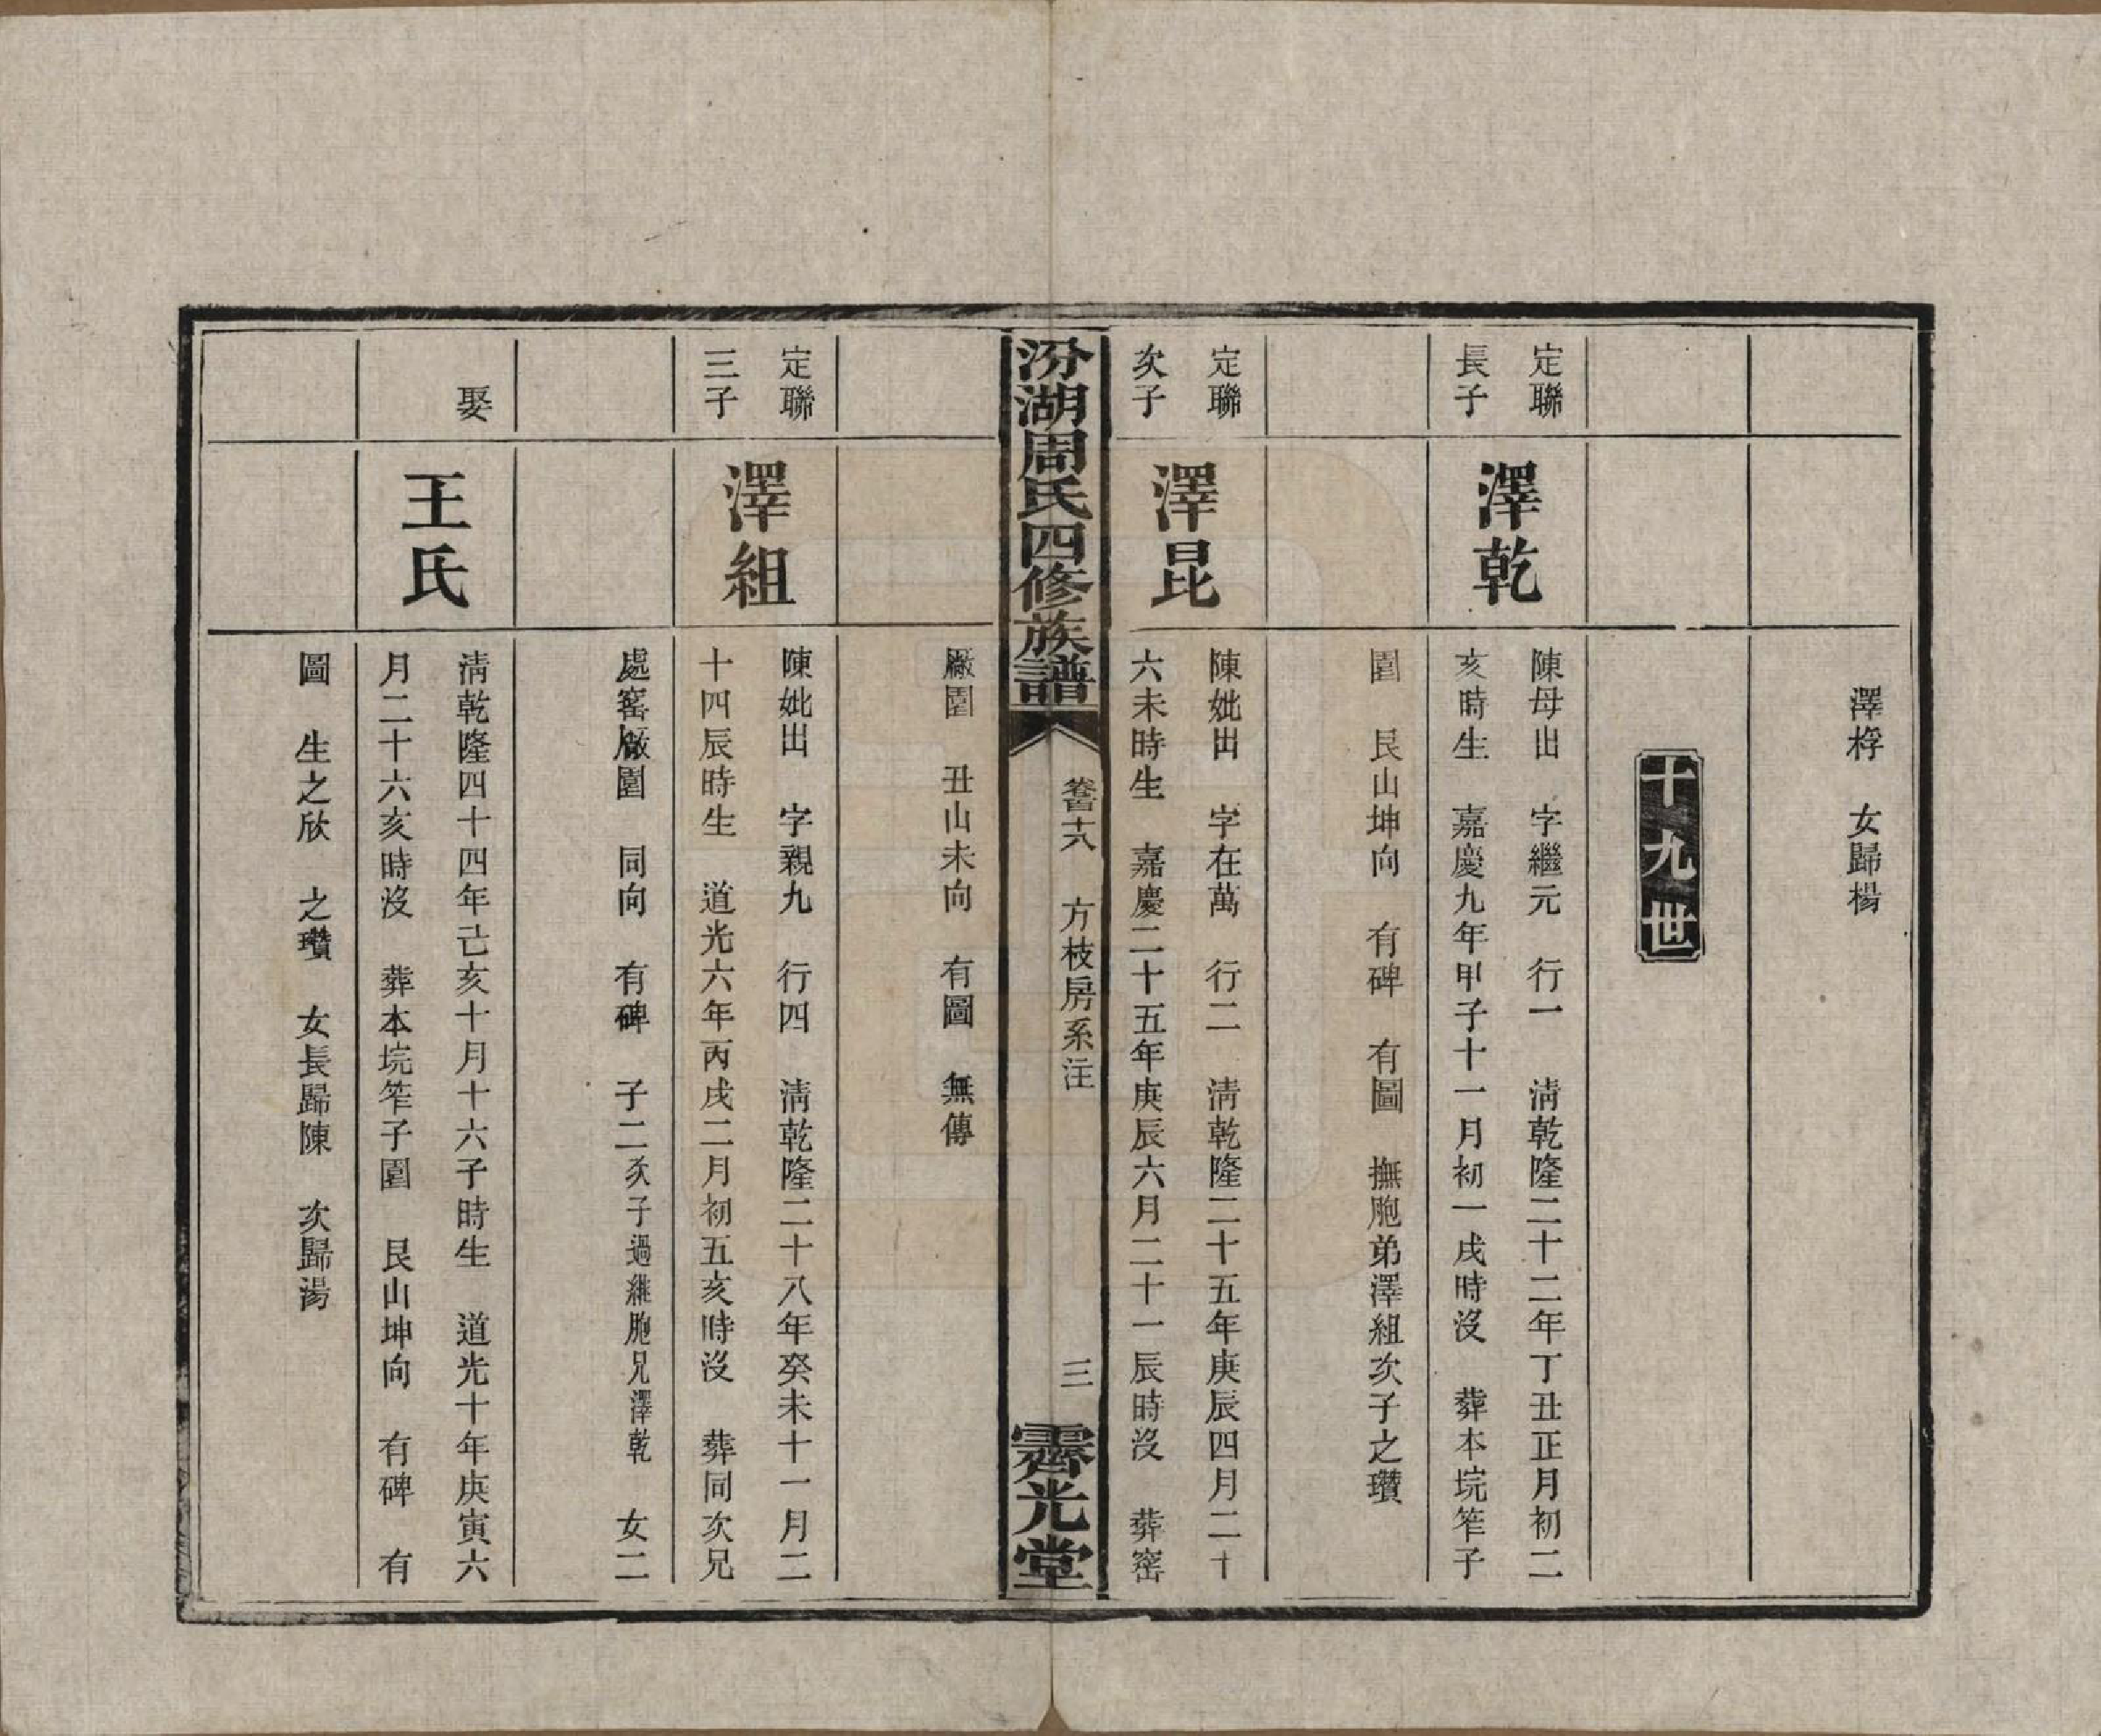 澤桴　女歸楊
十九世
定聯
長子
澤乾
陳母出　字繼元　行一　淸乾隆二十二年丁丑正月初二
亥時生　嘉慶九年甲子十一月初一戌時沒　葬本垸笮子
園　艮山坤向　有碑　有圖　撫胞弟澤組次子之瓚
定聯
次子
澤昆
陳妣出　字在萬　行二　淸乾隆二十五年庚辰四月二十
六未時生　嘉慶二十五年庚辰六月二十一辰時沒　葬窰
廠園　丑山未向　有圖　無傳
汾湖周氏四修族譜
卷百十八　方枝房系注
三
霽光堂
定聯
三子
澤組
陳妣出　字親九　行四　淸乾隆二十八年癸未十一月二
十四辰時生　道光六年丙戌二月初五亥時沒　葬同次兄
處窰廠園　同向　有碑　子二次子過繼胞兄澤乾　女二
娶
王氏
淸乾隆四十四年己亥十月十六子時生　道光十年庚寅六
月二十六亥時沒　葬本垸笮子園　艮山坤向　有碑　有
圖　生之欣　之瓚　女長歸陳　次歸湯